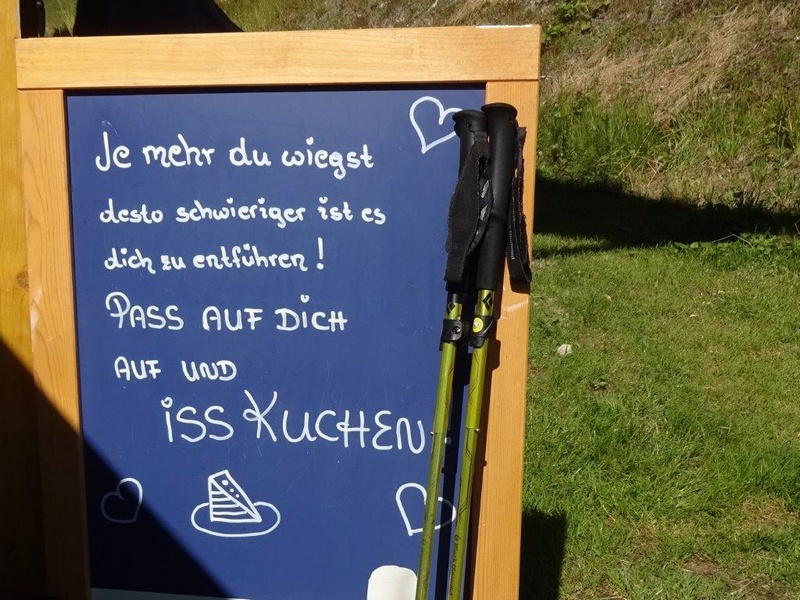 Je mehr du wiegst
desto schwieriger ist es
dich zu entführen!
PASS AUF DICH
AUF UND
iSS KUCHEN